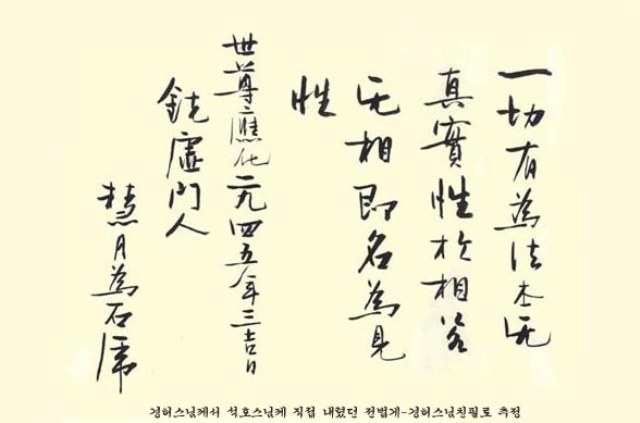 一切有為法本无
真實性於相若
无相即名為見
性
世尊應化二九四五年三吉日
鏡虛門人
慧月為石虎
경허스님께서 석호스님께 직접 내렸던 전법게-경허스님친필로 추정